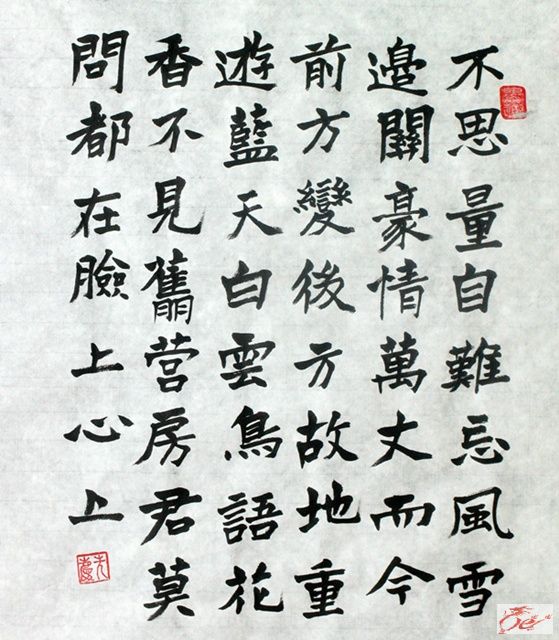 不思量自難忘風雪
邊關豪情萬丈而今
前方變後方故地重
遊藍天白雲鳥語花
香不見舊营房君莫
問都在臉上心上